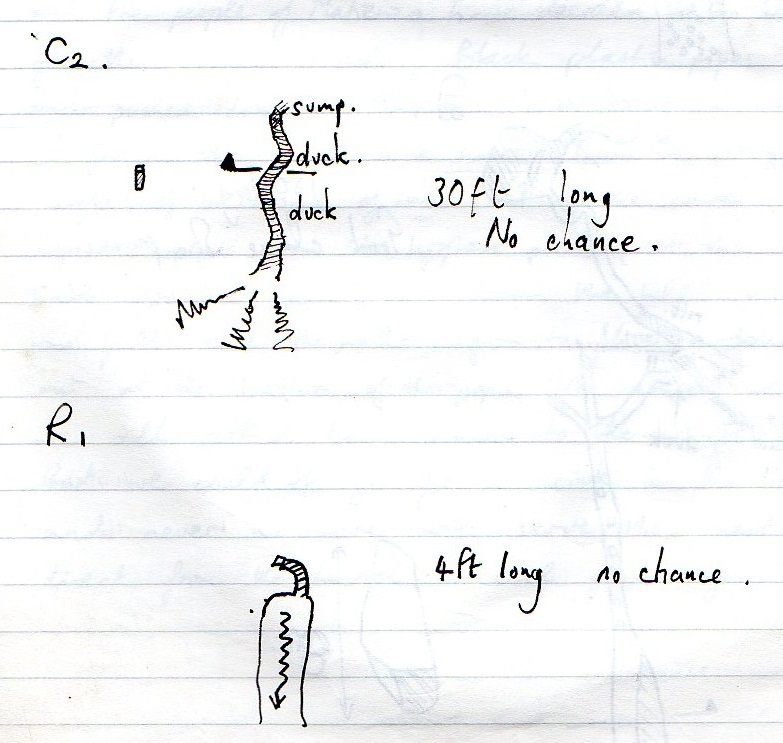 C2.
sump.
duck.
duck
30ft long
No chance.
R1
4ft long no chance.